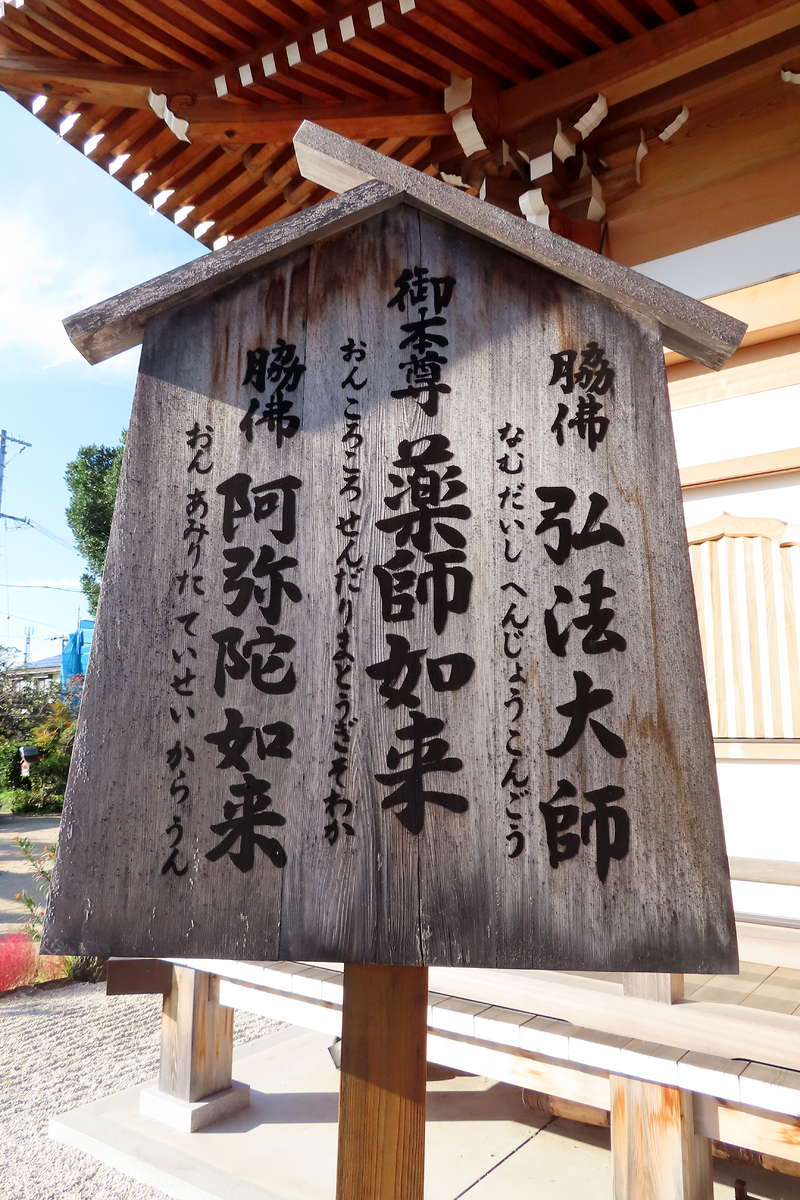 脇佛 弘法大師
なむ だいし へんじょうこんごう
御本尊 薬師如来
おん ころころ せんだり まとうぎ そわか
脇佛 阿弥陀如来
おん あみりた ていせい からうん